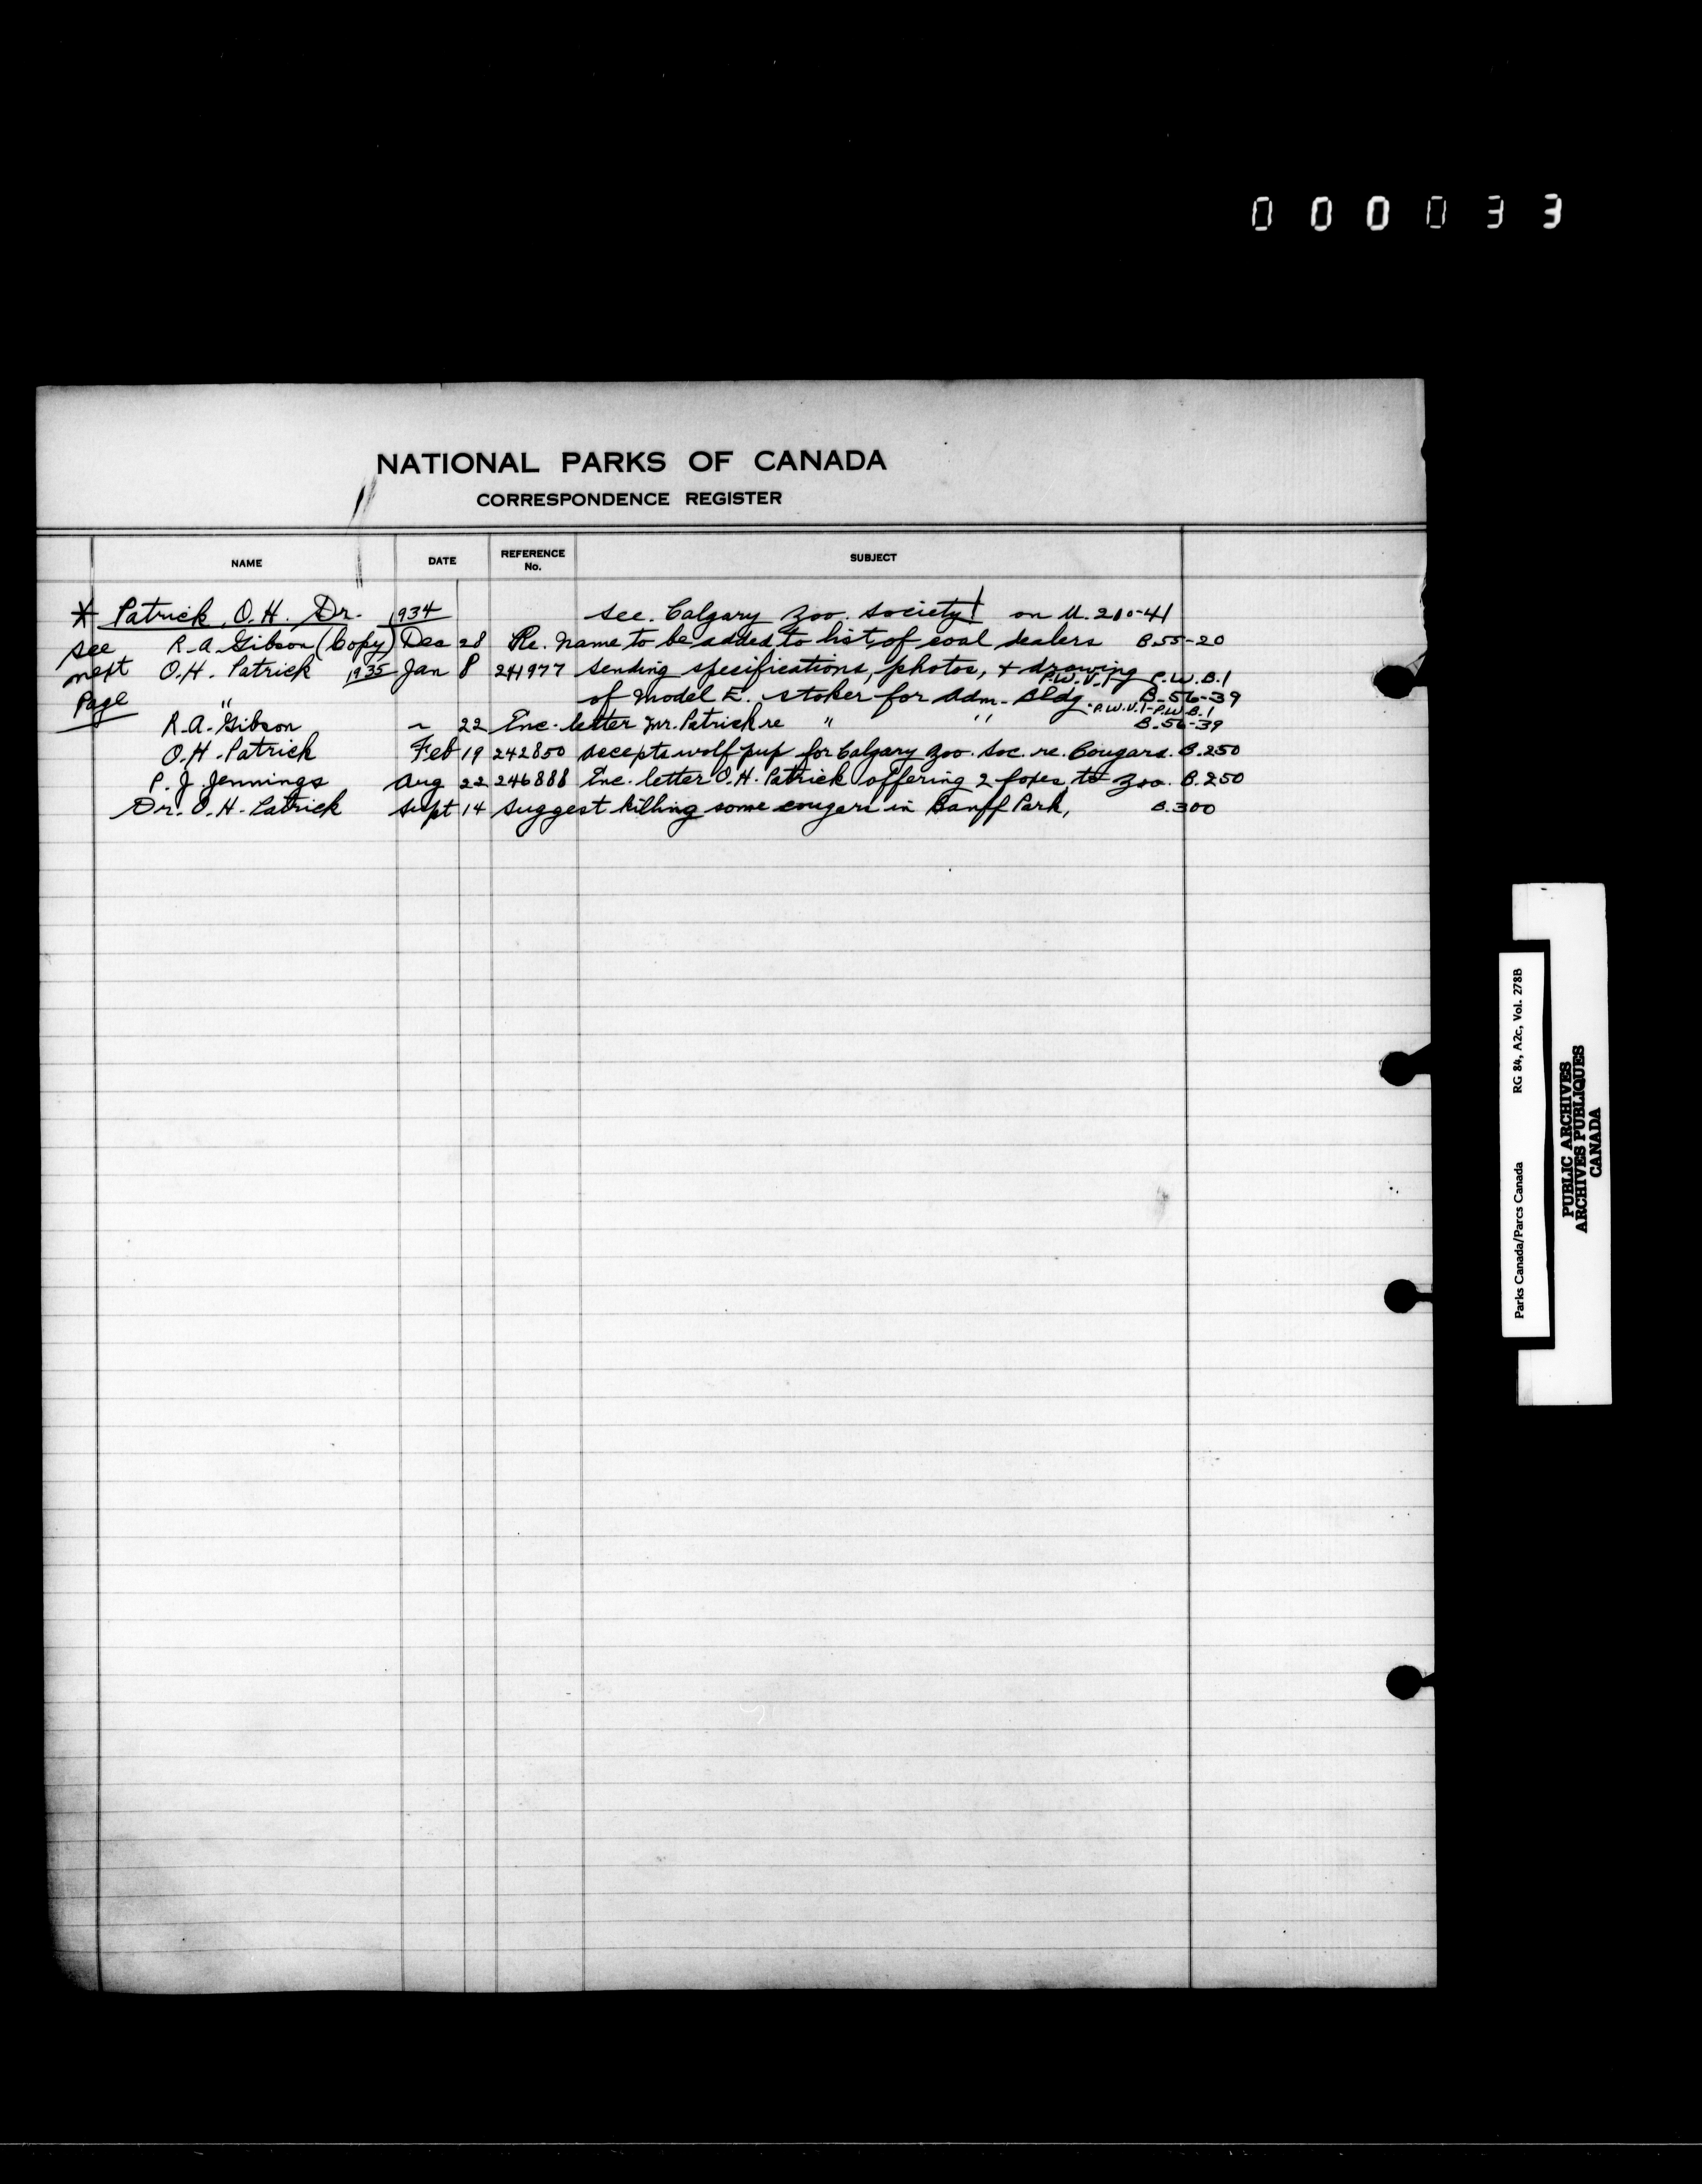 000033
NATIONAL PARKS OF CANADA
CORRESPONDENCE REGISTER
NAME DATE REFERENCE No. SUBJECT
* Patrick, O.H. Dr. 1934 see. Calgary Zoo. Society! on U. 210-41
see R.A. Gibson (Copy) Dec 28 Re. name to be added to list of coal dealers B.55-20
next O.H. Patrick 1935 Jan 8 241977 sending specifications, photos, & drawing P.W.B.1
Page " of Model E. stoker for Adm. Bldg. P.W.V.1 B-56-39
R.A. Gibson ~ 22 Enc. letter Mr. Patrick re " " P.W.V.1-P.W.B.1 B-56-39
O.H. Patrick Feb 19 242850 accepts wolf pup for Calgary Zoo. Soc. re. Cougars. B.250
P. J. Jennings Aug 22 246888 Enc. letter O.H. Patrick offering 2 foxes to Zoo. B.250
Dr. O.H. Patrick Sept 14 suggest killing some cougars in Banff Park, B.300
Parks Canada/Parcs Canada RG 84, A2c, Vol. 278B
PUBLIC ARCHIVES
ARCHIVES PUBLIQUES
CANADA